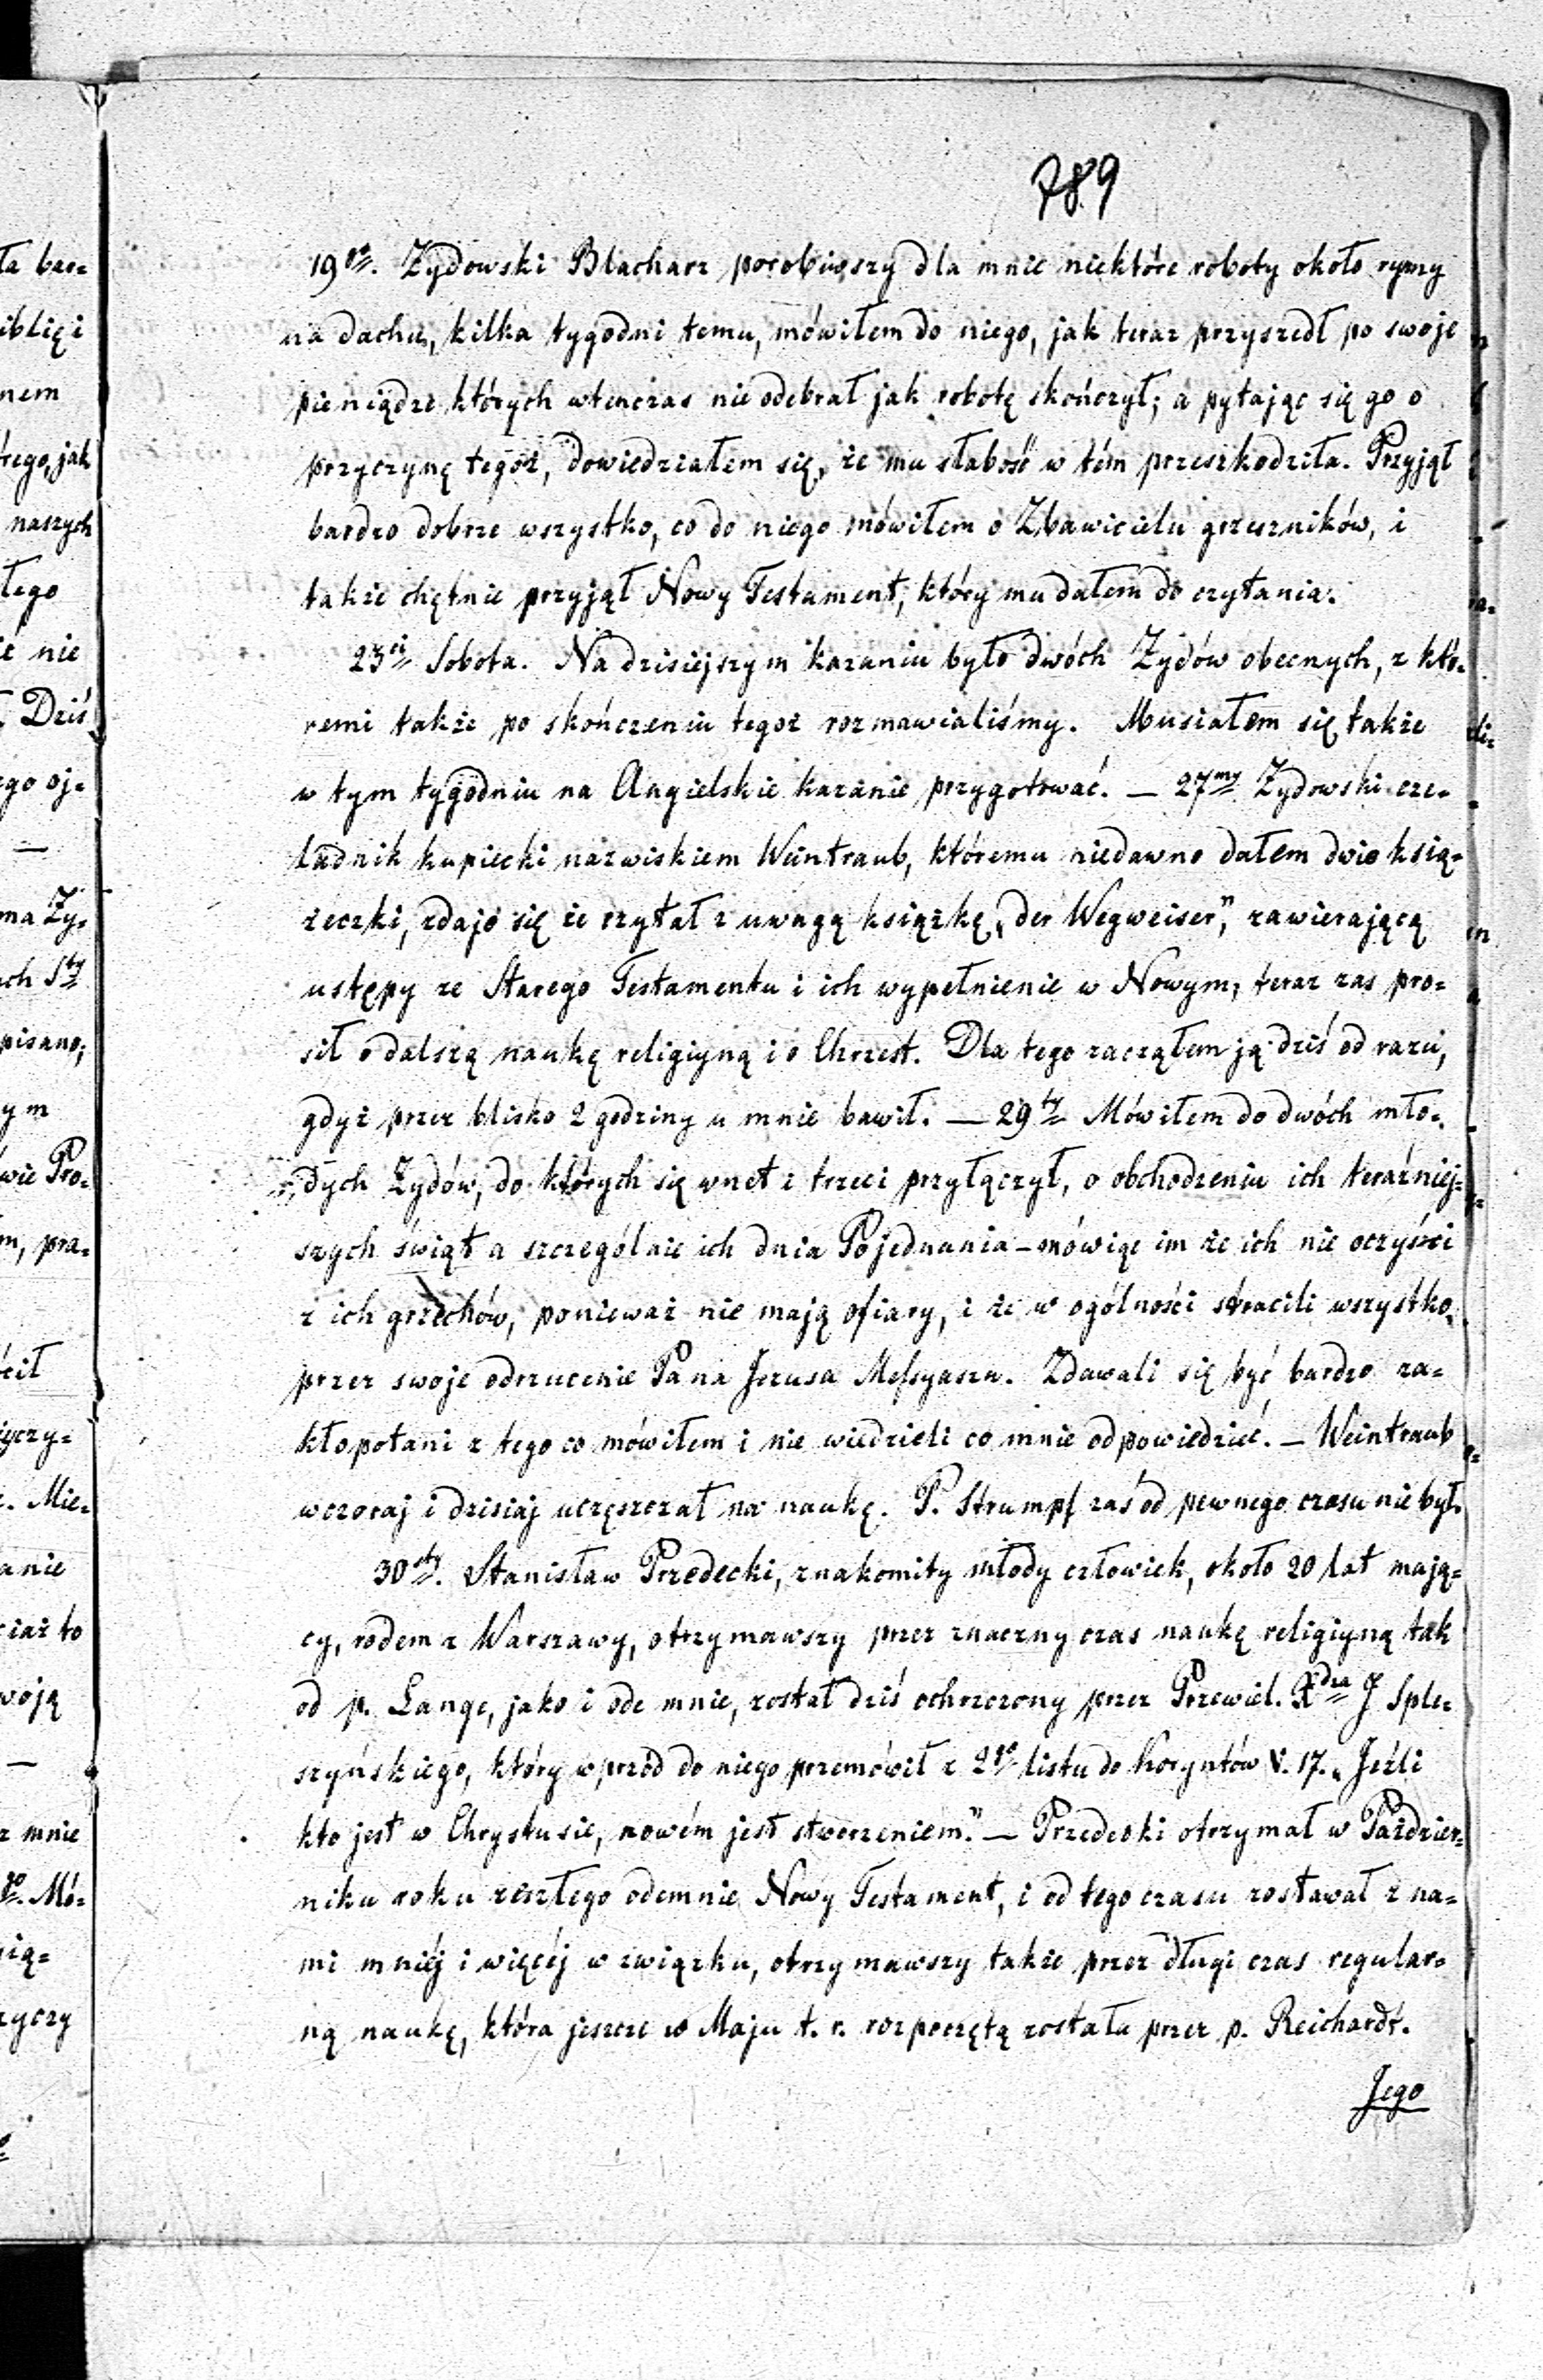 789
19go. Żydowski Blacharz porobiwszy dla mnie niektóre roboty około rynny
na dachu, kilka tygodni temu, mówiłem do niego, jak teraz przyszedł po swoje
pieniądze których wtenczas nie odebrał jak robotę skończył; a pytając się go o
przyczynę tegoż, dowiedziałem się, że mu słabość w tém przeszkodziła. Przyjął
bardzo dobrze wszystko, co do niego mówiłem o Zbawicielu grzeszników, i
także chętnie przyjął Nowy Testament, który mu dałem do czytania.
23ci Sobota. Na dzisiejszym kazaniu było dwóch Żydów obecnych, z któ-
remi także po skończeniu tegoż rozmawialiśmy. Musiałem się także
w tym tygodniu na Angielskie kazanie przygotować. — 27my Żydowski cze-
ladnik kupiecki nazwiskiem Weintraub, któremu niedawno dałem dwie ksią-
żeczki, zdaje się że czytał z uwagą książkę „der Wegweiser", zawierającą
ustępy ze Starego Testamentu i ich wypełnienie w Nowym, teraz zas pro=
sił o dalszą naukę religiyną i o Chrzest. Dla tego zacząłem ją dziś od razu,
gdyż przez blisko 2 godziny u mnie bawił. — 29ty Mówiłem do dwóch mło-
dych Żydów, do których się wnet i trzeci przyłączył, o obchodzeniu ich teraźniej=
szych świąt a szczególnie ich dnia Pojednania – mówiąc im że ich nie oczyści
z ich grzechów, ponieważ nie mają ofiary, i że w ogólności stracili wszystko,
przez swoje odrzucenie Pana Jezusa Messyasza. Zdawali się być bardzo za=
kłopotani z tego co mówiłem i nie wiedzieli co mnie odpowiedzieć. – Weintraub
wczoraj i dzisiaj uczęszczał na naukę. P. Strumpf zaś od pewnego czasu nie był.
30sty. Stanisław Przedecki, znakomity młody człowiek, około 20 lat mają=
cy, rodem z Warszawy, otrzymawszy przez znaczny czas naukę religiyną tak
od p. Lange, jako i ode mnie, został dziś ochrzczony przez Przewiel. Xdza J Sple=
szyńskiego, który wprzód do niego przemówił z 2go listu do Koryntów V. 17. „Jeźli
kto jest w Chrystusie, nowém jest stworzeniem." — Przedecki otrzymał w Paździer=
niku roku zeszłego odemnie Nowy Testament, i od tego czasu zostawał z na=
mi mniéj i więcéj w związku, otrzymawszy także przez długi czas regular=
ną naukę, która jeszcze w Maju t. r. rozpoczętą została przez p. Reichardt.
Jego